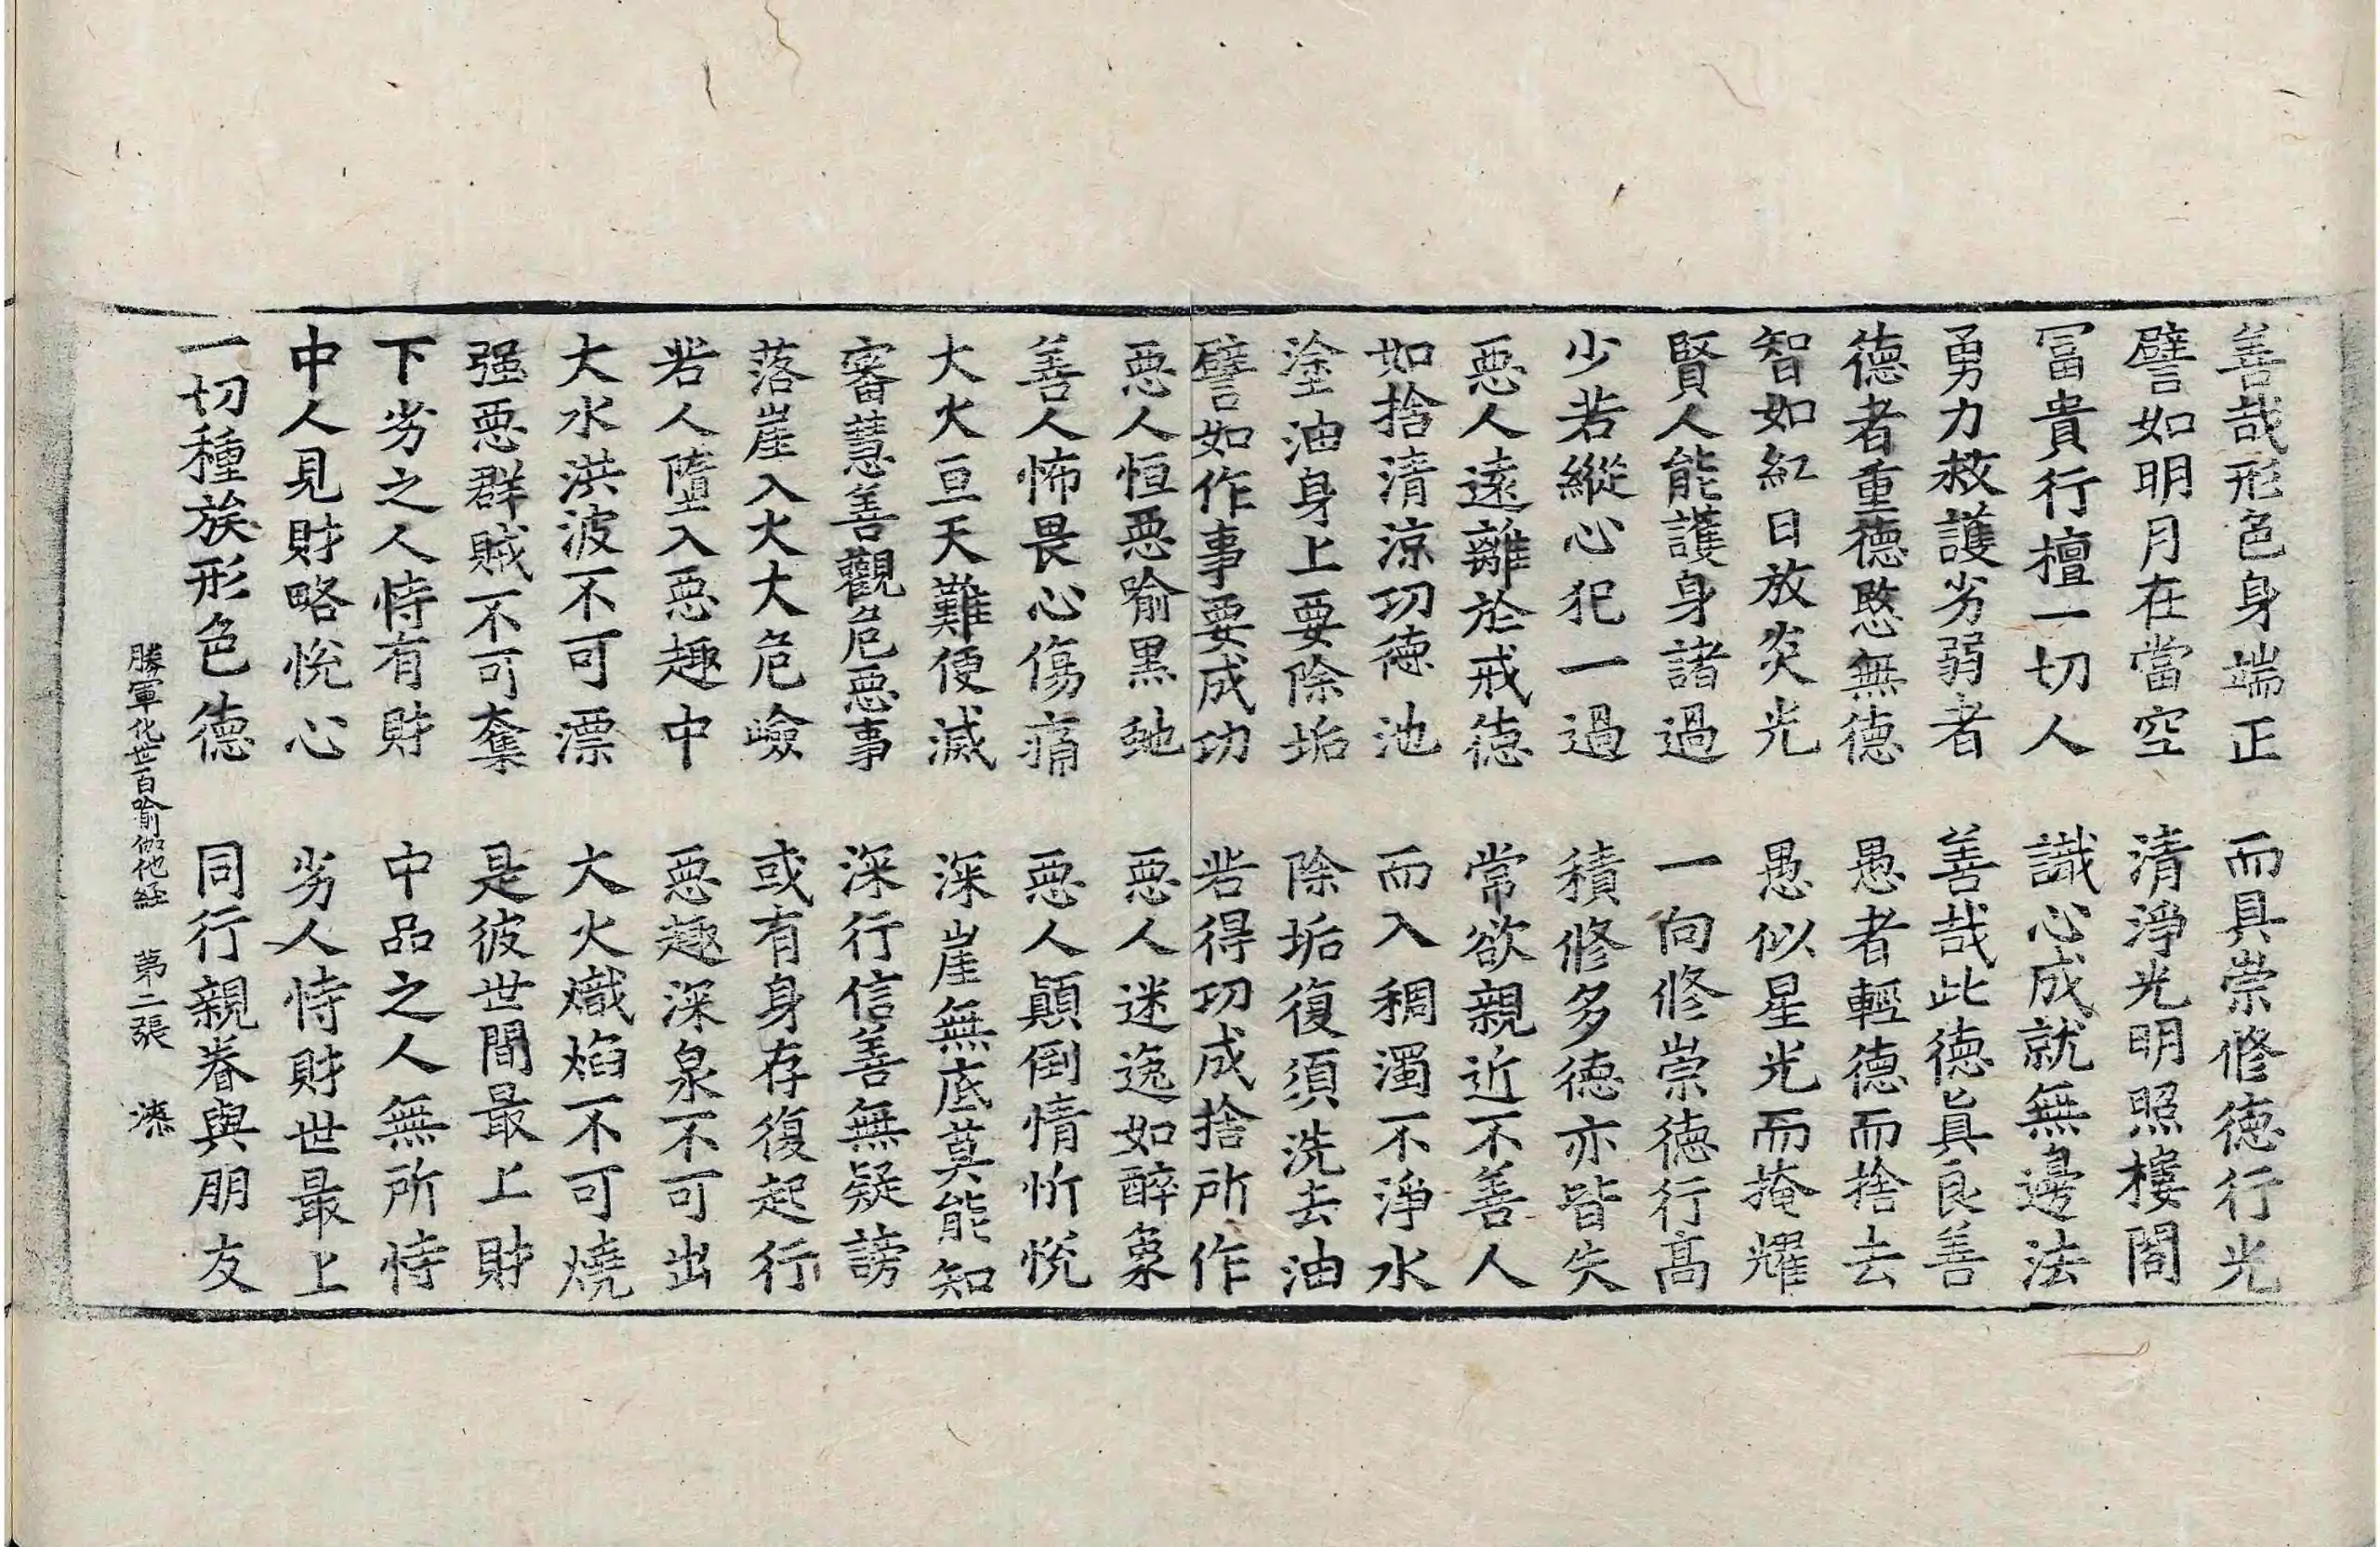 善哉形色身端正　而具崇修德行光
譬如明月在當空　清淨光明照樓閣
冨貴行檀一切人　識心成就無邊法
勇力救護劣弱者　善哉此德眞良善
德者重德愍無德　愚者輕德而捨去
智如紅日放炎光　愚似星光而掩耀
賢人能護身諸過　一向修崇德行高
少若縱心犯一過　積修多德亦皆失
惡人遠離於戒德　常欲親近不善人
如捨清涼功德池　而入稠濁不淨水
塗油身上要除垢　除垢復須洗去油
譬如作事要成功　若得功成捨所作
惡人恒惡喻黑虵　惡人迷逸如醉象
善人怖畏心傷痛　惡人顚倒情忻悅
大火亘天難便滅　深崖無底莫能知
審慧善觀危惡事　深行信善無疑謗
落崖入火大危嶮　或有身存復起行
若人墮入惡趣中　惡趣深泉不可出
大水洪波不可漂　大火熾焰不可燒
强惡群賊不可奪　是彼世間最上財
下劣之人恃有財　中品之人無所恃
中人見財略悅心　劣人恃財世最上
一切種族形色德　同行親眷與朋友
勝軍化世百喻伽他經　第二張　漆